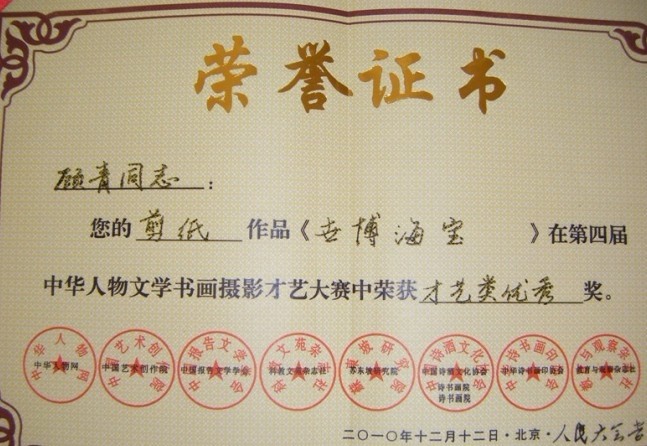 荣誉证书
顾青同志：
您的剪纸作品《世博海宝》在第四届
中华人物文学书画摄影才艺大赛中荣获才艺类优秀奖。
中华人物网
中国艺术创作院
中国报告文学学会
科教文苑杂志社
苏东坡研究院
中国诗酒文化协会
诗书画院
诗书画院
中华诗书画印协会
教育与观察杂志社
二〇一〇年十二月十二日·北京·人民大会堂